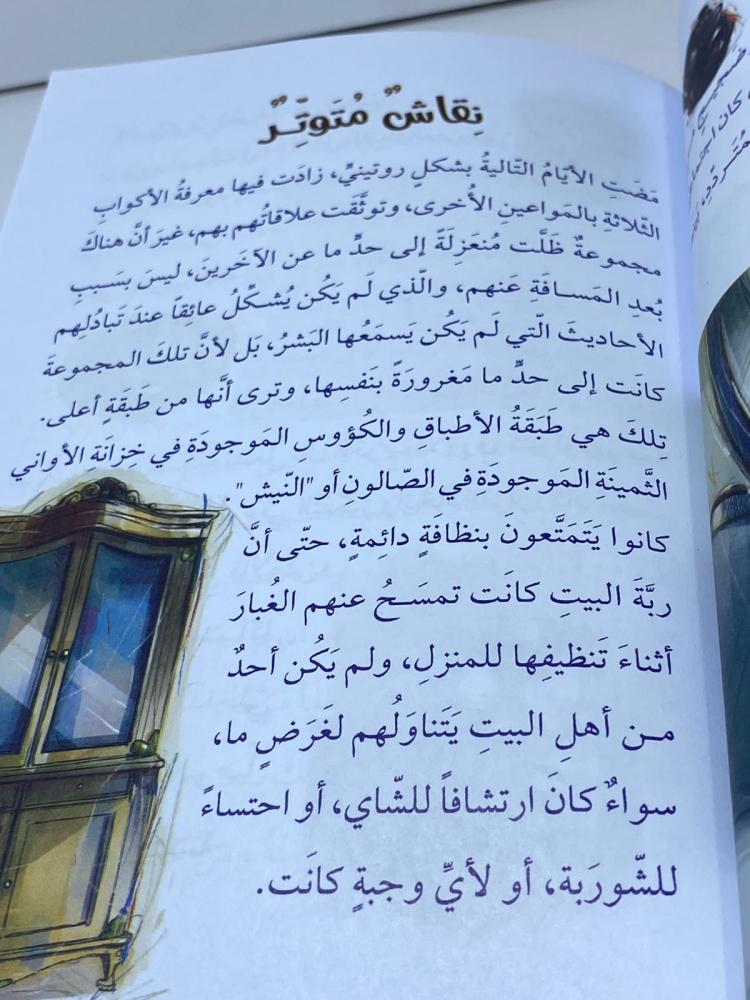 نِقاشٌ مُتَوتِّرٌ
مَضَتِ الأيّامُ التّاليةُ بشكلٍ روتينيٍّ، زادَت فيها معرفةُ الأكوابِ
الثّلاثةِ بالمَواعينِ الأُخرى، وتوثَّقَت علاقاتُهم بهم، غيرَ أنَّ هناكَ
مجموعةٌ ظَلَّت مُنعَزِلَةً إلى حدٍّ ما عن الآخَرينَ، ليسَ بسَببِ
بُعدِ المَسافَةِ عَنهم، والّذي لَم يَكُن يُشكِّلُ عائِقاً عندَ تبادُلِهم
الأحاديثَ الّتي لَم يَكُن يَسمَعُها البَشرُ، بَل لأنَّ تلكَ المجموعةَ
كانَت إلى حدٍّ ما مَغرورَةً بنَفسِها، وترى أنَّها من طَبقَةٍ أعلى.
تِلكَ هي طَبَقَةُ الأطباقِ والكُؤوسِ المَوجودَةِ في خِزانَةِ الأواني
الثَّمينَةِ المَوجودَةِ في الصّالونِ أو "النّيش".
كانوا يَتَمَتَّعونَ بنظافَةٍ دائِمةٍ، حتّى أنَّ
ربَّةَ البيتِ كانَت تمسَحُ عنهم الغُبارَ
أثناءَ تَنظيفِها للمنزلِ، ولم يَكُن أحدٌ
من أهلِ البيتِ يَتَناوَلُهم لغَرَضٍ ما،
سواءٌ كانَ ارتشافاً للشّاي، أو احتساءً
للشّورَبة، أو لأيِّ وجبةٍ كانَت.